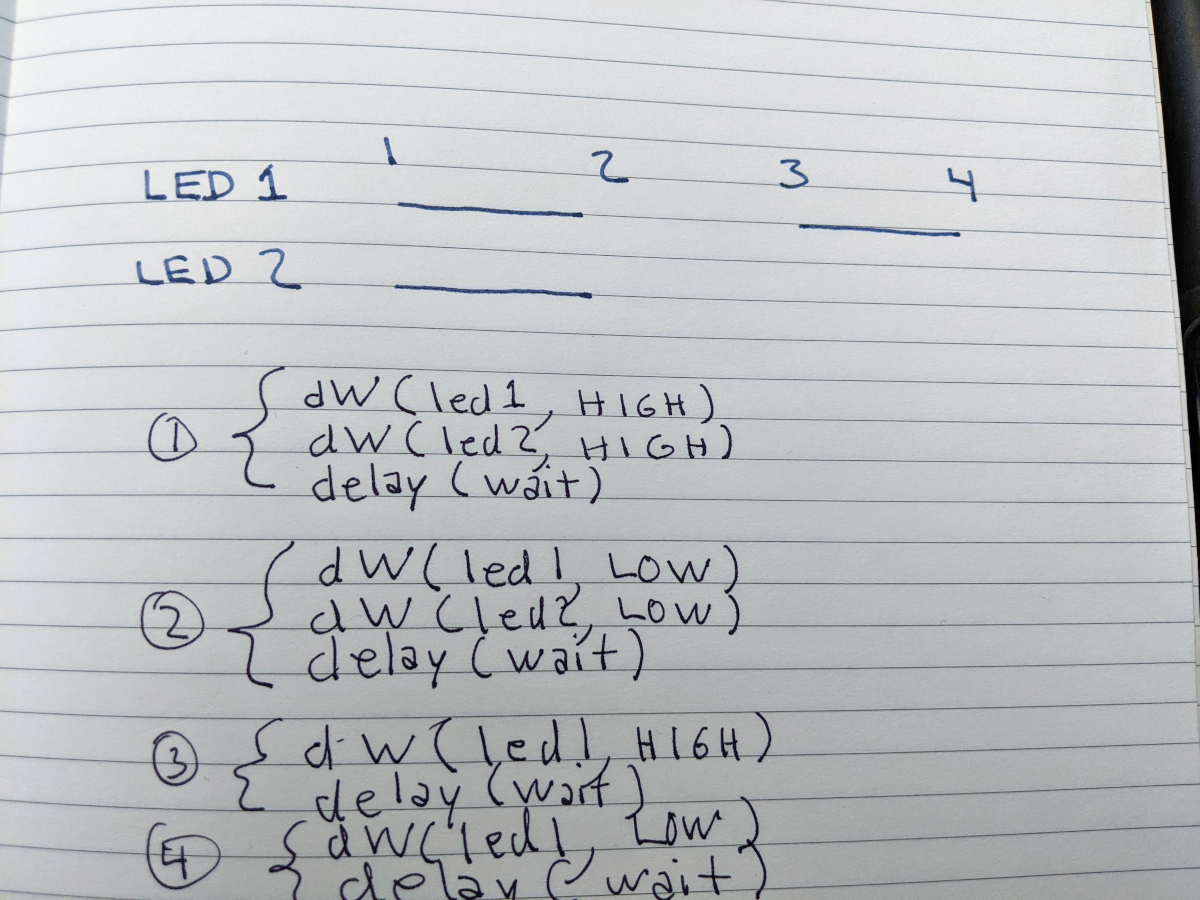 1 2 3 4
LED 1
LED 2
① dW(led1, HIGH)
dW(led2, HIGH)
delay(wait)
② dW(led1, LOW)
dW(led2, LOW)
delay(wait)
③ dW(led1, HIGH)
delay(wait)
④ dW(led1, LOW)
delay(wait)